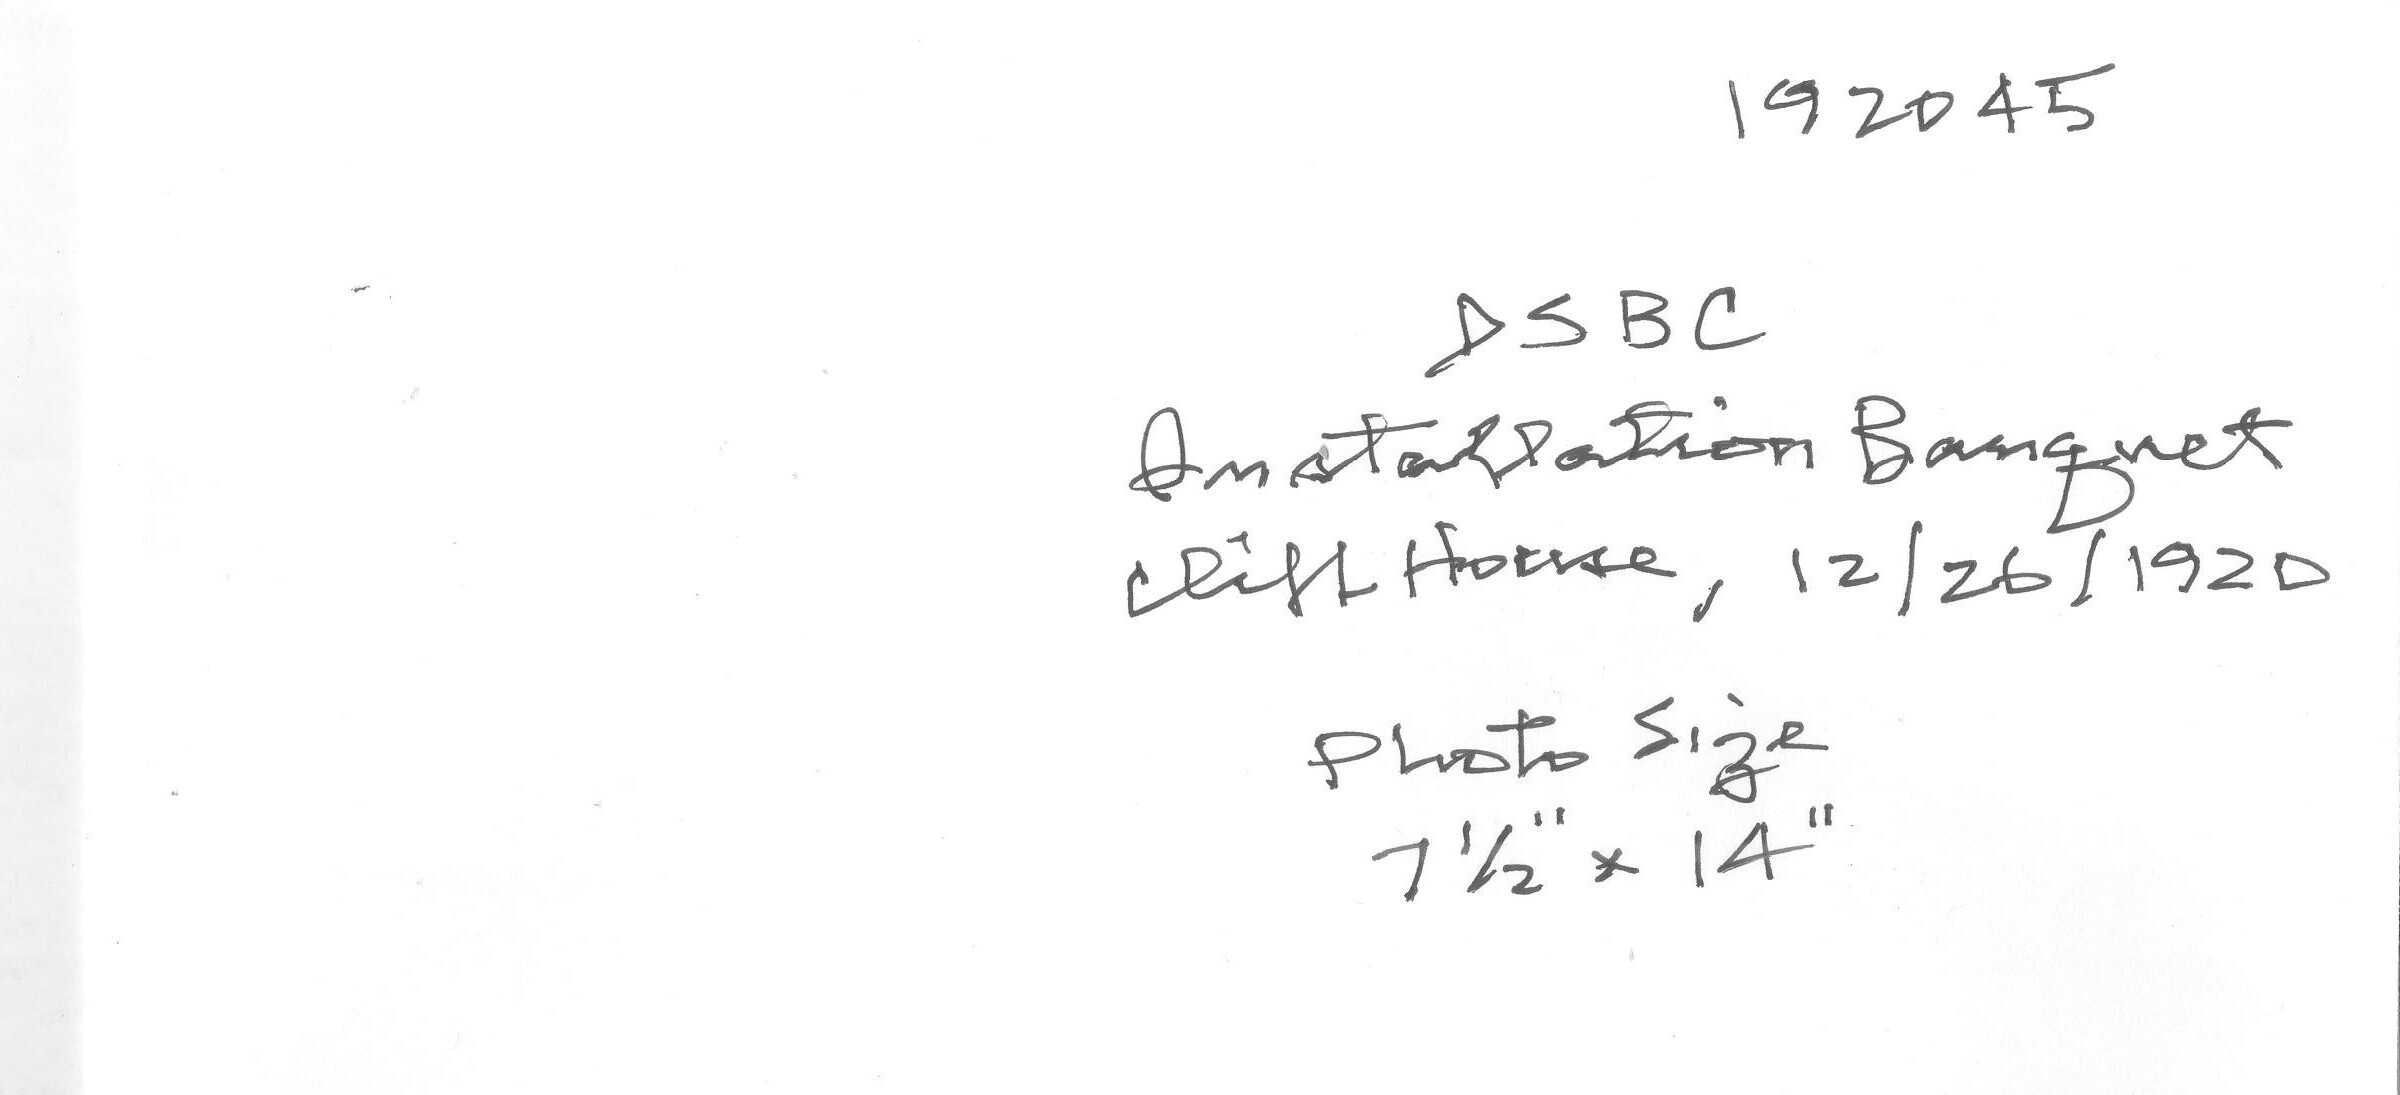 192045
DSBC
Installation Banquet
Cliff House, 12/26/1920
Photo Size
7 1/2" x 14"